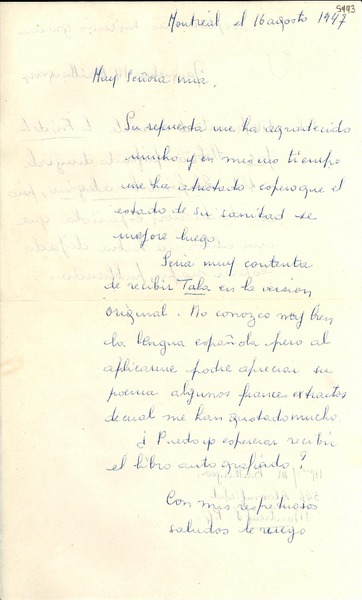 5993
Montréal el 16 agosto 1947
Muy Señora mia.
Su repuesta me ha agradecido
mucho y en mismo tiempo
me ha atristado espero que el
estado de su sanidad se
mejore luego.
Seria muy contenta
de recibir Tala en la version
original. No conozco muy bien
la lengua española pero al
aplicarme podre apreciar su
poema algunos frances extractos
de cual me han gustado mucho.
¿Puedo yo esperar recibir
el libro autografiado?
Con mis respetuosos
saludos le ruego